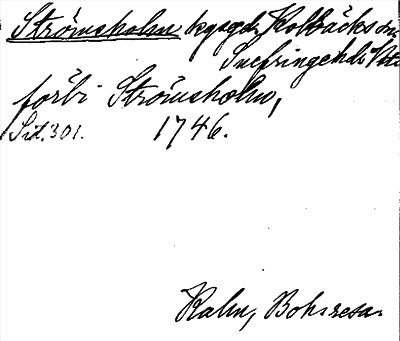 Strömsholm kgsgd, Kolbäcks sn,
Snefringe hd. Vstm
förbi Strömsholm,
Sid. 301. 1746.
Kalm, Bohusresa.